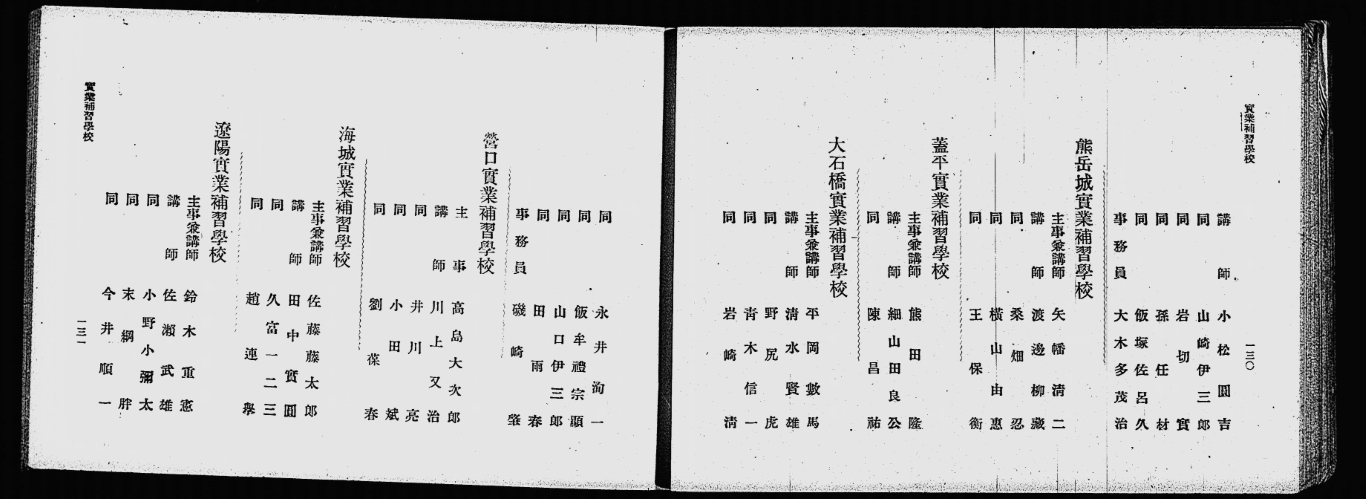 實業補習學校
一三〇
講師 小松圓吉
同 山崎伊三郎
同 岩切實
同 孫任材
同 飯塚佐呂久
事務員 大木多茂治
熊岳城實業補習學校
主事兼講師 矢幡淸二
講師 渡邊柳藏
同 桑畑忍
同 橫山由惠
同 王保衡
蓋平實業補習學校
主事兼講師 熊田隆
講師 細山田良公
同 陳昌祐
大石橋實業補習學校
主事兼講師 平岡數馬
講師 淸水賢雄
同 野尻虎
同 靑木信一
同 岩崎淸
同 永井洵一
同 飯牟禮宗顯
同 山口伊三郎
同 田雨春
事務員 磯崎肇
營口實業補習學校
主事 高島大次郎
講師 川上又治
同 井川亮
同 小田斌
同 劉葆春
海城實業補習學校
主事兼講師 佐藤藤太郎
講師 田中實圓
同 久富一二三
同 趙連擧
遼陽實業補習學校
主事兼講師 鈴木重憲
講師 佐瀨武雄
同 小野小彌太
同 末綱胖
同 今井順一
實業補習學校
一三一